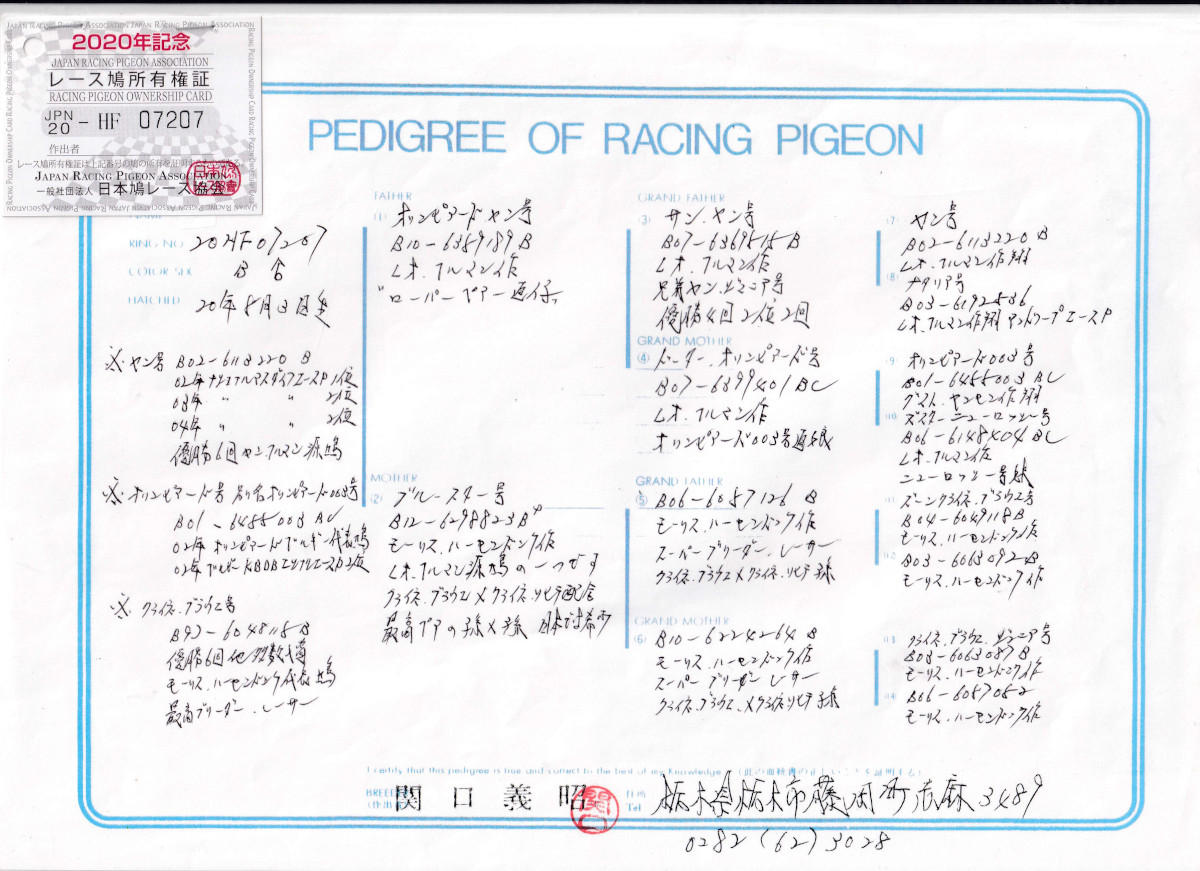 2020年記念
JAPAN RACING PIGEON ASSOCIATION
レース鳩所有権証
RACING PIGEON OWNERSHIP CARD
JPN 20 - HF 07207
作出者
レース鳩所有権証は上記番号の鳩の所有を証明するものである。
JAPAN RACING PIGEON ASSOCIATION
一般社団法人 日本鳩レース協会
PEDIGREE OF RACING PIGEON
RING NO 20HF07207
COLOR SEX B
HATCHED 20年8月3日生
※ ヤン号 B02-6113220 B
03年 〃 〃 2位
04年 〃 〃 2位
優勝6回 ヤン.フルマン 源鳩
※ オリンピアード号 別名オリンピアード003号
B01-6455003 BC
02年 オリンピアードベルギー代表鳩
※ クライネ.ブラウエ号
優勝6回他 多数入賞
モーリス.ハーセンドンク代表鳩
最高ブリーダー.レーサー
FATHER
(1) オリンピアードヤン号
B10-6359189 B
レオ.フルマン作
"ローパーペアー"直仔
MOTHER
(2) ブルースター号
B12-6298823 B
モーリス.ハーセンドンク作
レオ.フルマン源鳩の一つです
クライネ.ブラウエ×クライネ.リヒテ配合
最高ペアの孫×孫
GRAND FATHER
(3) サン.ヤン号
B07-6369515 B
レオ.フルマン作
兄弟ヤン.ジュニア号
優勝4回 2位2回
GRAND MOTHER
(4) ドーター.オリンピアード号
B07-6399401 BC
レオ.フルマン作
オリンピアード003号直娘
GRAND FATHER
(5) B06-6057126 B
モーリス.ハーセンドンク作
スーパーブリーダー.レーサー
クライネ.ブラウエ×クライネ.リヒテ孫
GRAND MOTHER
(6) B10-6224264 B
モーリス.ハーセンドンク作
スーパーブリーダー レーサー
クライネ.ブラウエ.×クライネ.リヒテ孫
(7) ヤン号
B02-6113220 B
レオ.フルマン作翔
(8) ナタリア号
B03-6192536
レオ.フルマン作翔 アントワープエースP
(9) オリンピアード003号
B01-6455003 BC
グスト.ヤンセン作翔
(10) ズスターニューロッシー号
B06-6148404 BC
レオ.フルマン作
(11) ズーンクライネ.ブラウエ号
B04-6049118 B
モーリス.ハーセンドンク作
(12) B03-6063092 B
モーリス.ハーセンドンク作
(13) クライネ.ブラウエ.ジュニア号
B03-6063087 B
モーリス.ハーセンドンク作
(14) B06-6057052
モーリス.ハーセンドンク作
I certify that this pedigree is true and correct to the best of my Knowledge (此の血統書の正しいことを証明する)
BREEDER (作出者) 関口義昭
住所 Tel 栃木県栃木市藤岡町赤麻3489
0282(62)3028